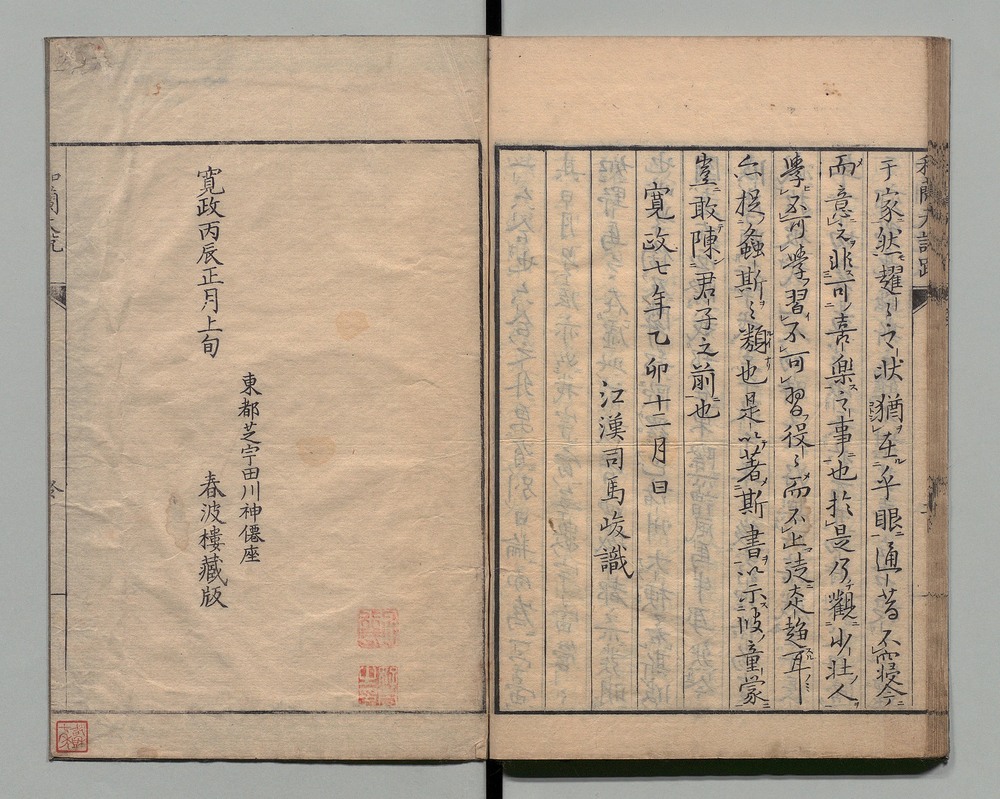 和蘭天説跋
于家然耀々之状猶在乎眼通昔不寝今
而意之非可喜樂之事也於是乃觀少壮人
學不可學習不可習役々而不止徒走趨耳
亦捉螽斯之類也是以著斯書以示彼童蒙
豈敢陳君子之前也
寛政七年乙卯十二月日
江漢司馬峻識
東都芝宇田川神僊座
寛政丙辰正月上旬
春波樓藏版